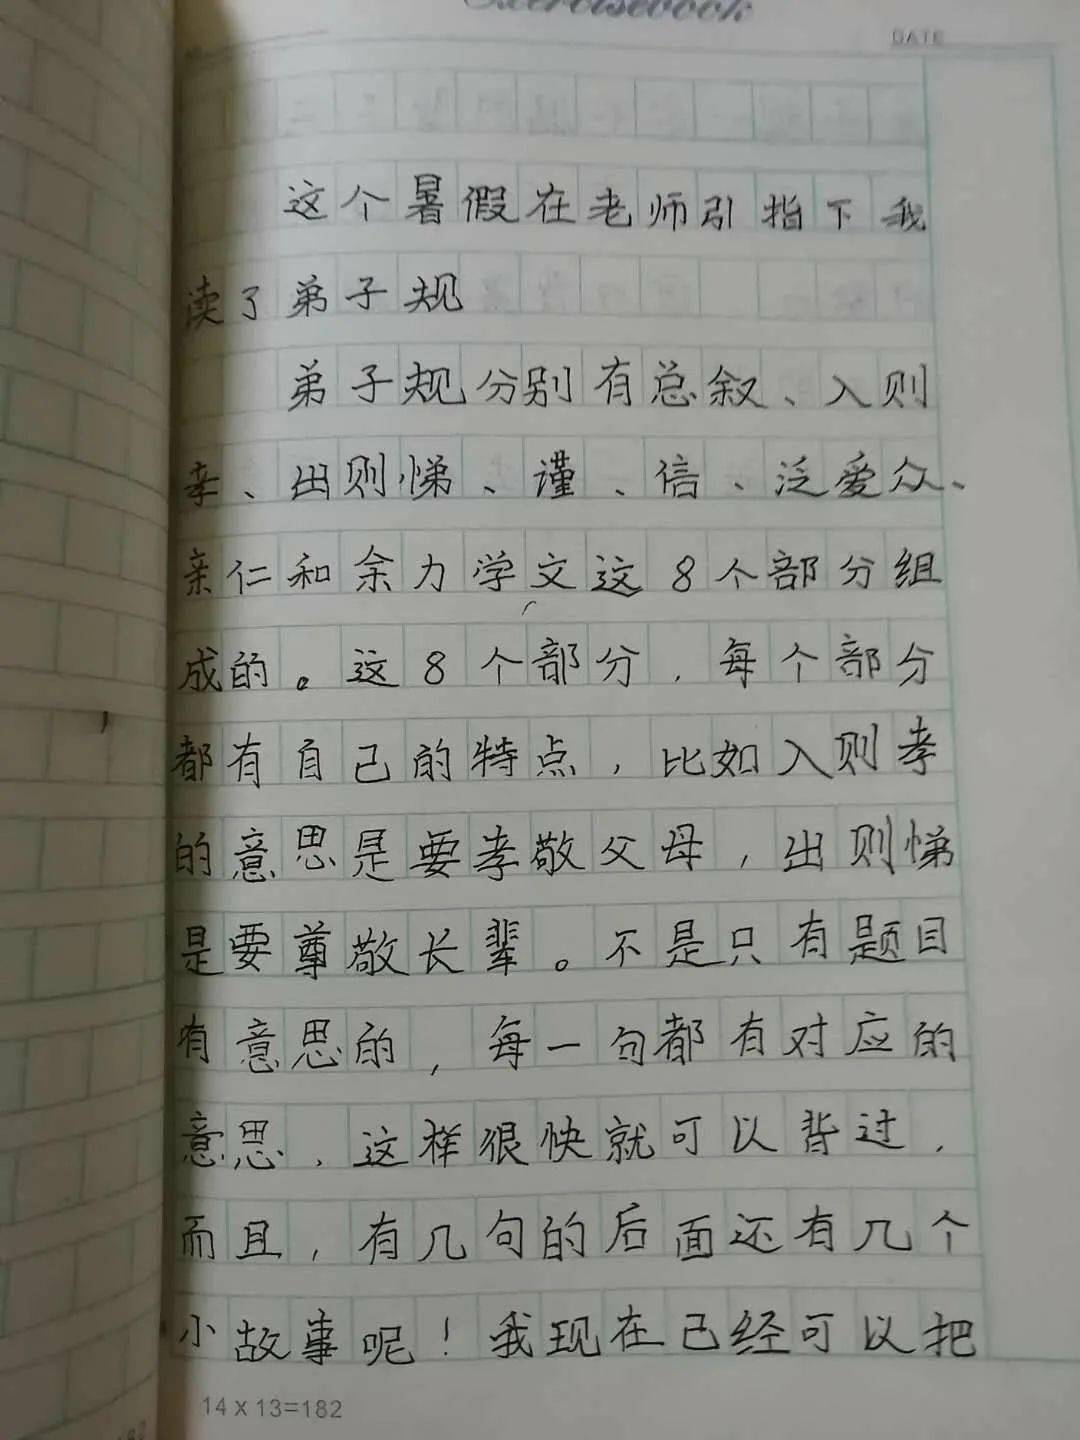 Exercisebook
DATE
这个暑假在老师引指下我
读了弟子规
弟子规分别有总叙、入则
孝、出则悌、谨、信、泛爱众、
亲仁和余力学文这8个部分组
成的。这8个部分，每个部分
都有自己的特点，比如入则孝
的意思是要孝敬父母，出则悌
是要尊敬长辈。不是只有题目
有意思的，每一句都有对应的
意思，这样很快就可以背过，
而且，有几句的后面还有几个
小故事呢！我现在已经可以把
14x13=182